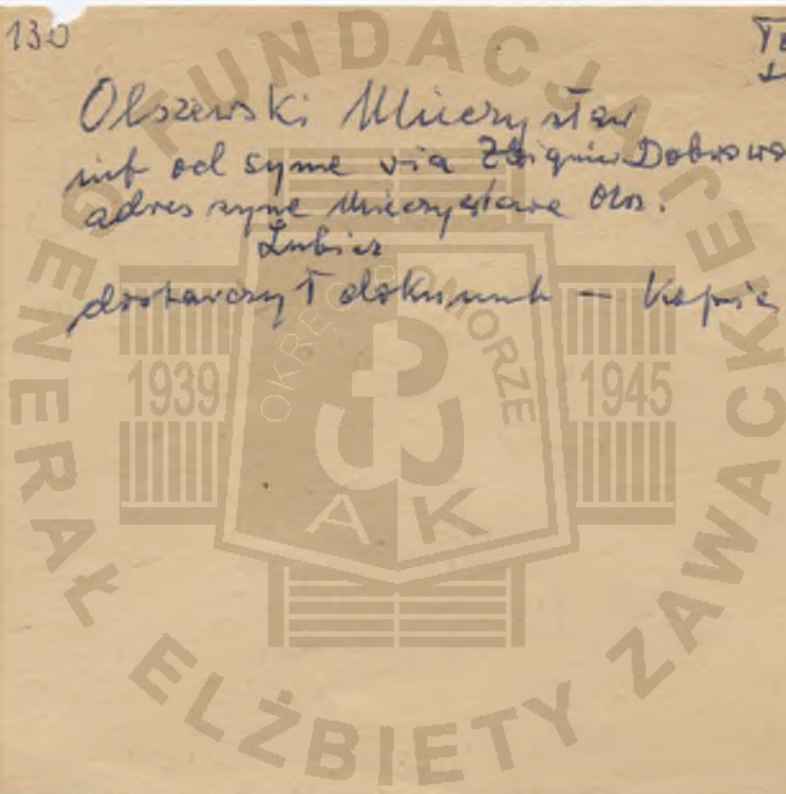 130
Olszewski Mieczysław
inf od syna via Zbigniew Dobrowo
adres syna Mieczysława Olsz.
Lubicz
dostarczył dokument – kopie
FUNDACJA
GENERAŁ ELŻBIETY ZAWACKIEJ
OKRĘG POMORZE
1939 1945
AK